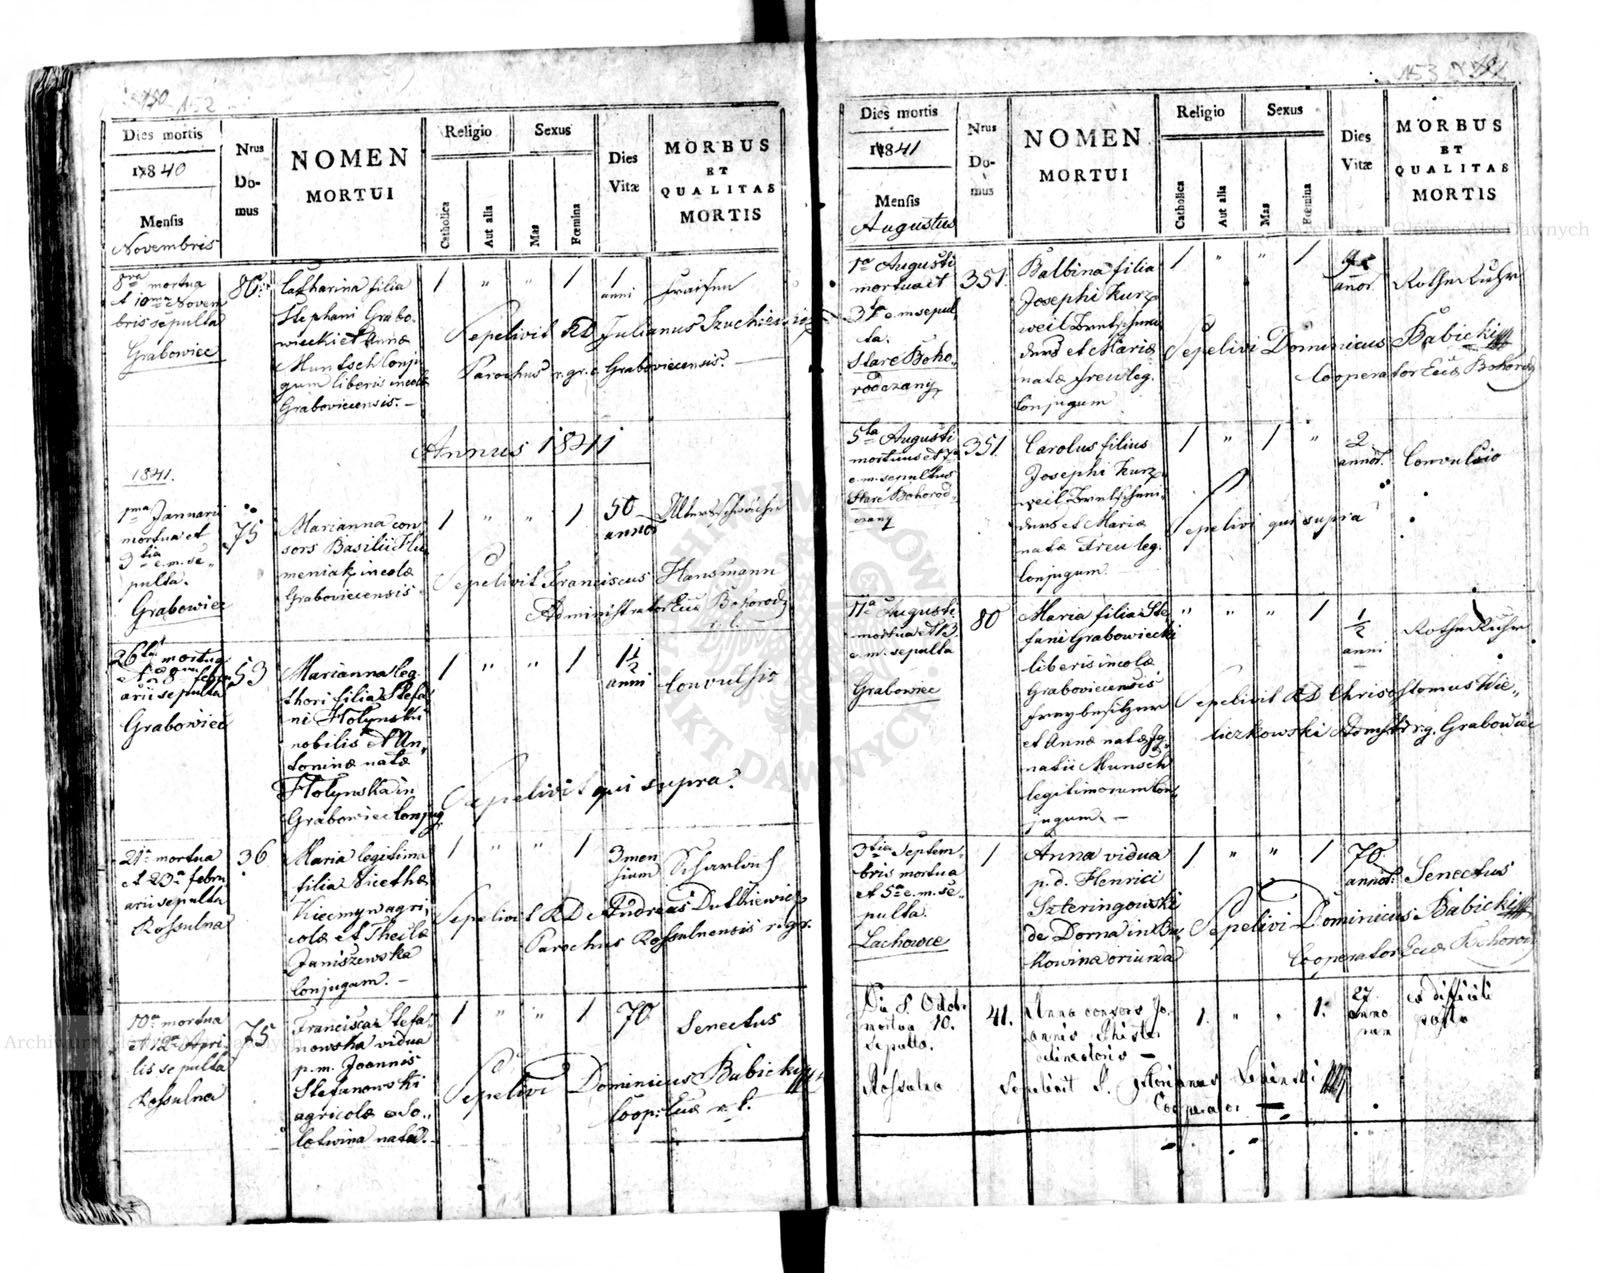 150 152
Dies mortis
1840
Mensis
Novembris
Nrus
Do-
mus
NOMEN
MORTUI
Religio
Catholica
Aut alia
Sexus
Mas
Fœmina
Dies
Vitæ
MORBUS
ET
QUALITAS
MORTIS
8va mortua
et 10ma Novem
bris sepulta
Grabowiec
80
Catharina filia
Stephani Grabo-
wiecki et Annæ
Muntsch Conju
gum liberis incolæ
Graboviecensis. —
1 " " 1
1
anni
Fraisen
Sepelivit RD Julianus
Parochus r. gr. c. Graboviecensis. —
Annus 1841
1841.
1ma Januarii
mortua et
3tia e. m. se-
pulta.
Grabowiec
75
Marianna con
sors Basilii Hu
meniak incolæ
Graboviecensis
1 " " 1
50
annor
Altersschwäche
Sepelivit Franciscus Hansmann
Administrator Eccæ Bohorod
r. l.
26ta mortua
et 28va febru
arii sepulta
Grabowiec
53
Marianna leg.
thori filia Stefa
ni Hołynski
nobilis et An-
toninæ natæ
Hołynska in
Grabowiec Conjug.
1 " " 1
1½
anni
Convulsio
Sepelivit qui supra.
21a mortua
et 23a febru
arii sepulta
Rossulna
36
Maria legitima
filia Nicethæ
agri,
colæ et Theclæ
Janiszewska
Conjugum. —
1 " " 1
3 men
sium
Scharlach
Sepelivit RD Andreas Dutkiewicz
Parochus Rossulnensis r. gr.
10a mortua
et 12a Apri
lis sepulta
Rossulna
75
Francisca Stefa
nowska vidua
p. m. Joannis
Stefanowski
agricolæ e So-
lotwina nata. —
1 " " 1
70
Senectus
Sepelivi Dominicus Babicki
Coop: Eccæ r. l.
153
Dies mortis
1841
Mensis
Augustus
Nrus
Do-
mus
NOMEN
MORTUI
Religio
Catholica
Aut alia
Sexus
Mas
Fœmina
Dies
Vitæ
MORBUS
ET
QUALITAS
MORTIS
1a Augusti
mortua et
3tia e. m. sepul
ta.
Stare Boho-
rodczany
351.
Balbina filia
Josephi Kurz
weil
et Mariæ
natæ Freu leg.
Conjugum
1 " " 1
annor.
Rothe Ruhr
Sepelivi Dominicus Babicki
Cooperator Eccæ Bohorod
5ta Augusti
mortuus et 7a
e. m. sepultus
Stare Bohorod-
czany
351.
Carolus filius
Josephi Kurz
weil
et Mariæ
natæ Freu leg.
Conjugum
1 " 1 "
2
annor.
Convulsio
Sepelivi qui supra
11a Augusti
mortua et 13
e. m. sepulta
Grabowiec
80
Maria filia Ste
fani Grabowiecki
liberis incolæ
Graboviecensis
Freybesitzer
et Annæ natæ Ig-
natii Munsch
legitimorum Con-
jugum. —
" " " 1
½
anni
Rothe Ruhr
Sepelivit RD Chrisostomus Wie-
liczkowski Admstr r. g. Grabowiec
3tia Septem-
bris mortua
et 5a e. m. se-
pulta
Lachowce
1
Anna vidua
p. d. Henrici
Szteringowski
de Dorna in Bu
kowina oriunda
1 " " 1
70
annor.
Senectus
Sepelivi Dominicus Babicki
Cooperator Eccæ Bohorod
Die 8. Octobr
mortua 10.
sepulta.
Rossulna
41.
Anna consors Jo
annis
1. " " 1.
27
anno
rum
ex difficili
partu
Sepelivit P. Florianus
Cooperator —
Archiwum Główne Akt Dawnych
ARCHIWUM GŁÓWNE AKT DAWNYCH
Archiwum Główne Akt Dawnych